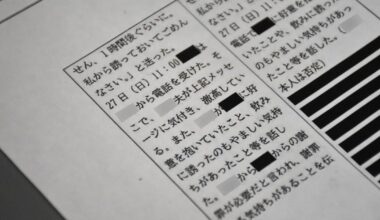 せん、1時間後ぐらいに、
私から誘っておいてごめん
なさい。」と送った。
27日（日）11：00 は
から電話を受けた。そ
こで、 夫が上記メッセ
ージに気付き、激高してい
る。また、 が に好
意を抱いていたこと、飲み
に誘ったのもやましい気持
ちがあったこと等を話し
た。 から への謝
罪が必要だと言われ、謝罪
気持ちがあることを伝
27日（日）11：00
電話で に好意を
ていたことや、飲みに誘っ
たのもやましい気持ちがあっ
たこと等を話した（
本人は否定）